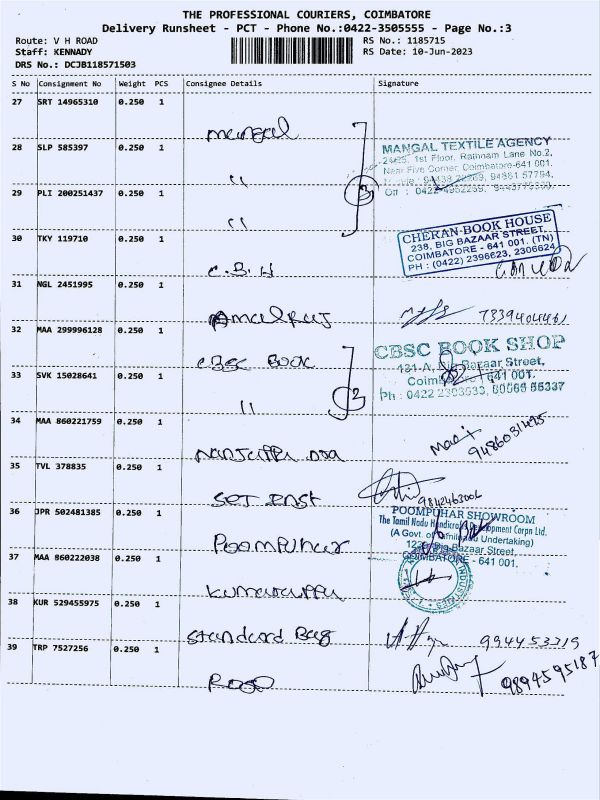 THE PROFESSIONAL COURIERS, COIMBATORE
Delivery Runsheet - PCT - Phone No.:0422-3505555 - Page No.:3
Route: V H ROAD
RS No.: 1185715
Staff: KENNADY
RS Date: 10-Jun-2023
DRS No.: DCJB118571503
S No Consignment No Weight PCS Consignee Details Signature
27 SRT 14965310 0.250 1
mangal
28 SLP 585397 0.250 1
MANGAL TEXTILE AGENCY
1st Floor, Rathnam Lane No.2,
Near Five Corner, Coimbatore-641 001.
"
29 PLI 200251437 0.250 1
"
30 TKY 119710 0.250 1
CHERAN BOOK HOUSE
238, BIG BAZAAR STREET,
COIMBATORE - 641 001. (TN)
PH : (0422) 2396623, 2306624
C.B.H
31 NGL 2451995 0.250 1
Amalraj
7339404461
32 MAA 299996128 0.250 1
CBSC BOOK
CBSC BOOK SHOP
131-A, Big Bazaar Street,
641 001.
33 SVK 15028641 0.250 1
"
34 MAA 860221759 0.250 1
9486031495
35 TVL 378835 0.250 1
SET INST
9842463006
36 JPR 502481385 0.250 1
Poompuhar
POOMPUHAR SHOWROOM
The Tamil Nadu Handicrafts Development Corpn Ltd.
(A Govt. of Tamilnadu Undertaking)
Big Bazaar Street,
COIMBATORE - 641 001.
37 MAA 860222038 0.250 1
38 KUR 529455975 0.250 1
Standard Bag
994453319
39 TRP 7527256 0.250 1
9894595187